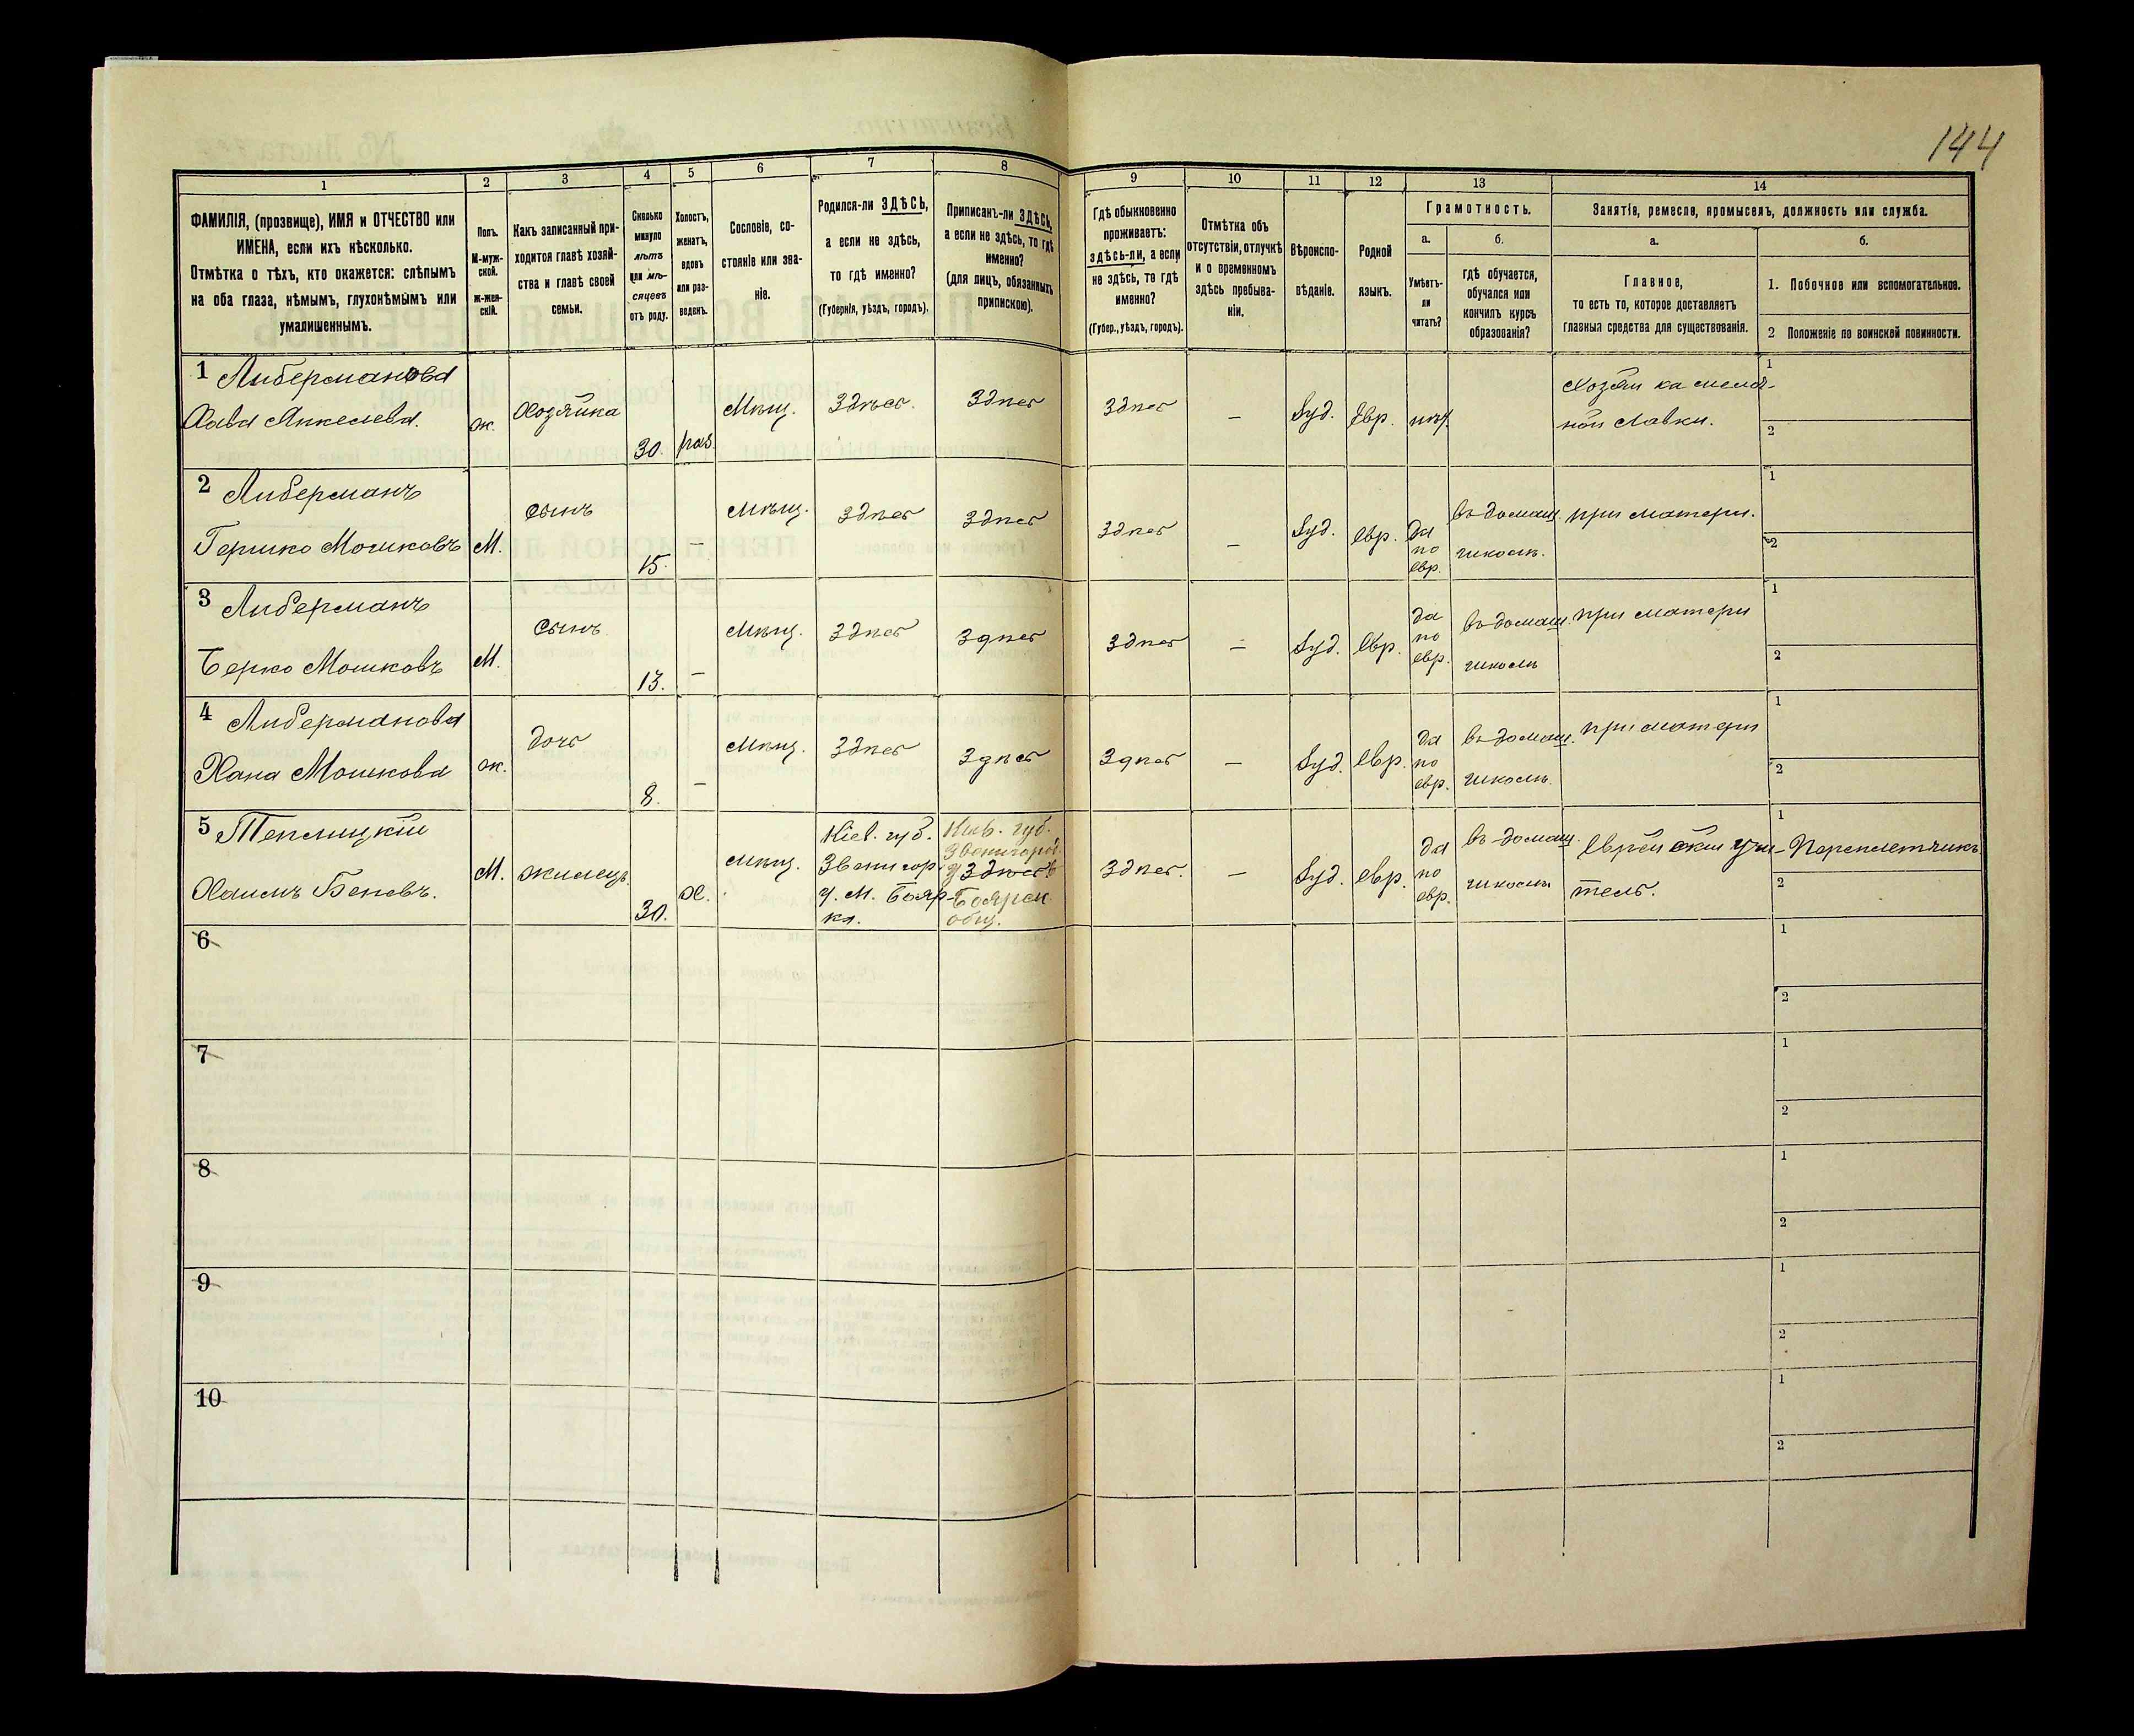 144
1 2 3 4 5 6 7 8 9 10 11 12 13 14
ФАМИЛІЯ, (прозвище), ИМЯ и ОТЧЕСТВО или
ИМЕНА, если ихъ нѣсколько.
Отмѣтка о тѣхъ, кто окажется: слѣпымъ
на оба глаза, нѣмымъ, глухонѣмымъ или
умалишеннымъ.
Полъ.
М-муж-
ской.
ж-жен-
скій.
Какъ записанный при-
ходится главѣ хозяй-
ства и главѣ своей
семьи.
Сколько
минуло
лѣтъ
или мѣ-
сяцевъ
отъ роду.
Холостъ,
женатъ,
вдовъ
или раз-
веденъ.
Сословіе, со-
стояніе или зва-
ніе.
Родился-ли ЗДѢСЬ,
а если не здѣсь,
то гдѣ именно?
(Губернія, уѣздъ, городъ).
Приписанъ-ли ЗДѢСЬ,
а если не здѣсь, то гдѣ
именно?
(для лицъ, обязанныхъ
припискою).
Гдѣ обыкновенно
проживаетъ:
здѣсь-ли, а если
не здѣсь, то гдѣ
именно?
(Губер., уѣздъ, городъ).
Отмѣтка объ
отсутствіи, отлучкѣ
и о временномъ
здѣсь пребыва-
ніи.
Вѣроиспо-
вѣданіе.
Родной
языкъ.
Грамотность.
а.
Умѣетъ-
ли
читать?
б.
гдѣ обучается,
обучался или
кончилъ курсъ
образованія?
Занятіе, ремесло, промыселъ, должность или служба.
а.
Главное,
то есть то, которое доставляетъ
главныя средства для существованія.
б.
1. Побочное или вспомогательное.
2 Положеніе по воинской повинности.
1 Либерманова
Хава Янкелева.
ж.
Хозяйка
30.
раз.
Мѣщ.
Здѣсь.
Здѣсь
Здѣсь
—
Іуд.
Евр.
нѣт.
Хозяйка мелоч-
ной лавки.
1
2
2 Либерманъ
Гершко Мошковъ
М.
сынъ
15.
—
Мѣщ.
Здѣсь
Здѣсь
Здѣсь
—
Іуд.
Евр.
да
по
евр.
въ домаш.
школѣ.
при матери.
1
2
3 Либерманъ
Берко Мошковъ
М.
сынъ
13.
—
Мѣщ.
Здѣсь
Здѣсь
Здѣсь
—
Іуд.
Евр.
да
по
евр.
въ домаш.
школѣ
при матери
1
2
4 Либерманова
Хана Мошкова
ж.
дочь
8.
—
Мѣщ.
Здѣсь
Здѣсь
Здѣсь
—
Іуд.
Евр.
да
по
евр.
въ домаш.
школѣ.
при матери
1
2
5 Теплицкій
Хаимъ Беневъ.
М.
жилецъ
30.
х.
Мѣщ.
Кіев. губ.
Звенигор.
у. М. Бояр-
ка.
Кіев. губ.
Звенигород.
у Здѣсь
Боярск.
общ.
Здѣсь.
—
Іуд.
Евр.
да
по
евр.
въ домаш.
школѣ
Еврейскій учи-
тель.
1 Переплетчикъ
2
6
1
2
7
1
2
8
1
2
9
1
2
10
1
2